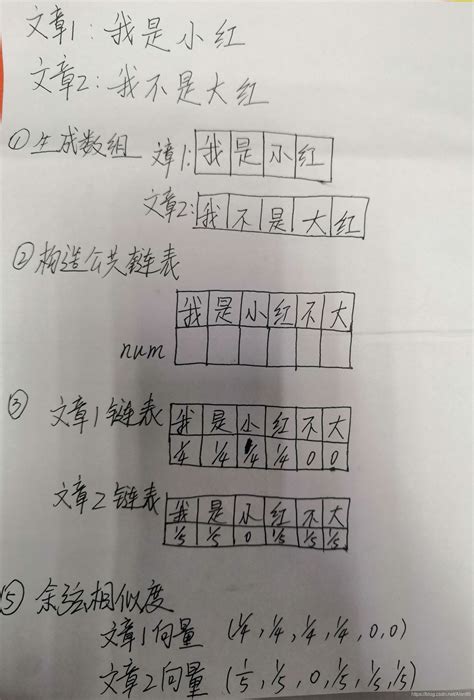 文章1:我是小红
文章2:我不是大红
①生成数组 文章1: 我 是 小 红
文章2: 我 不 是 大 红
②构造公共链表
我 是 小 红 不 大
num
③ 文章1链表 我 是 小 红 不 大
1/4 1/4 1/4 1/4 0 0
文章2链表 我 是 小 红 不 大
1/5 1/5 0 1/5 1/5 1/5
⑤ 余弦相似度
文章1向量 (1/4, 1/4, 1/4, 1/4, 0, 0)
文章2向量 (1/5, 1/5, 0, 1/5, 1/5, 1/5)